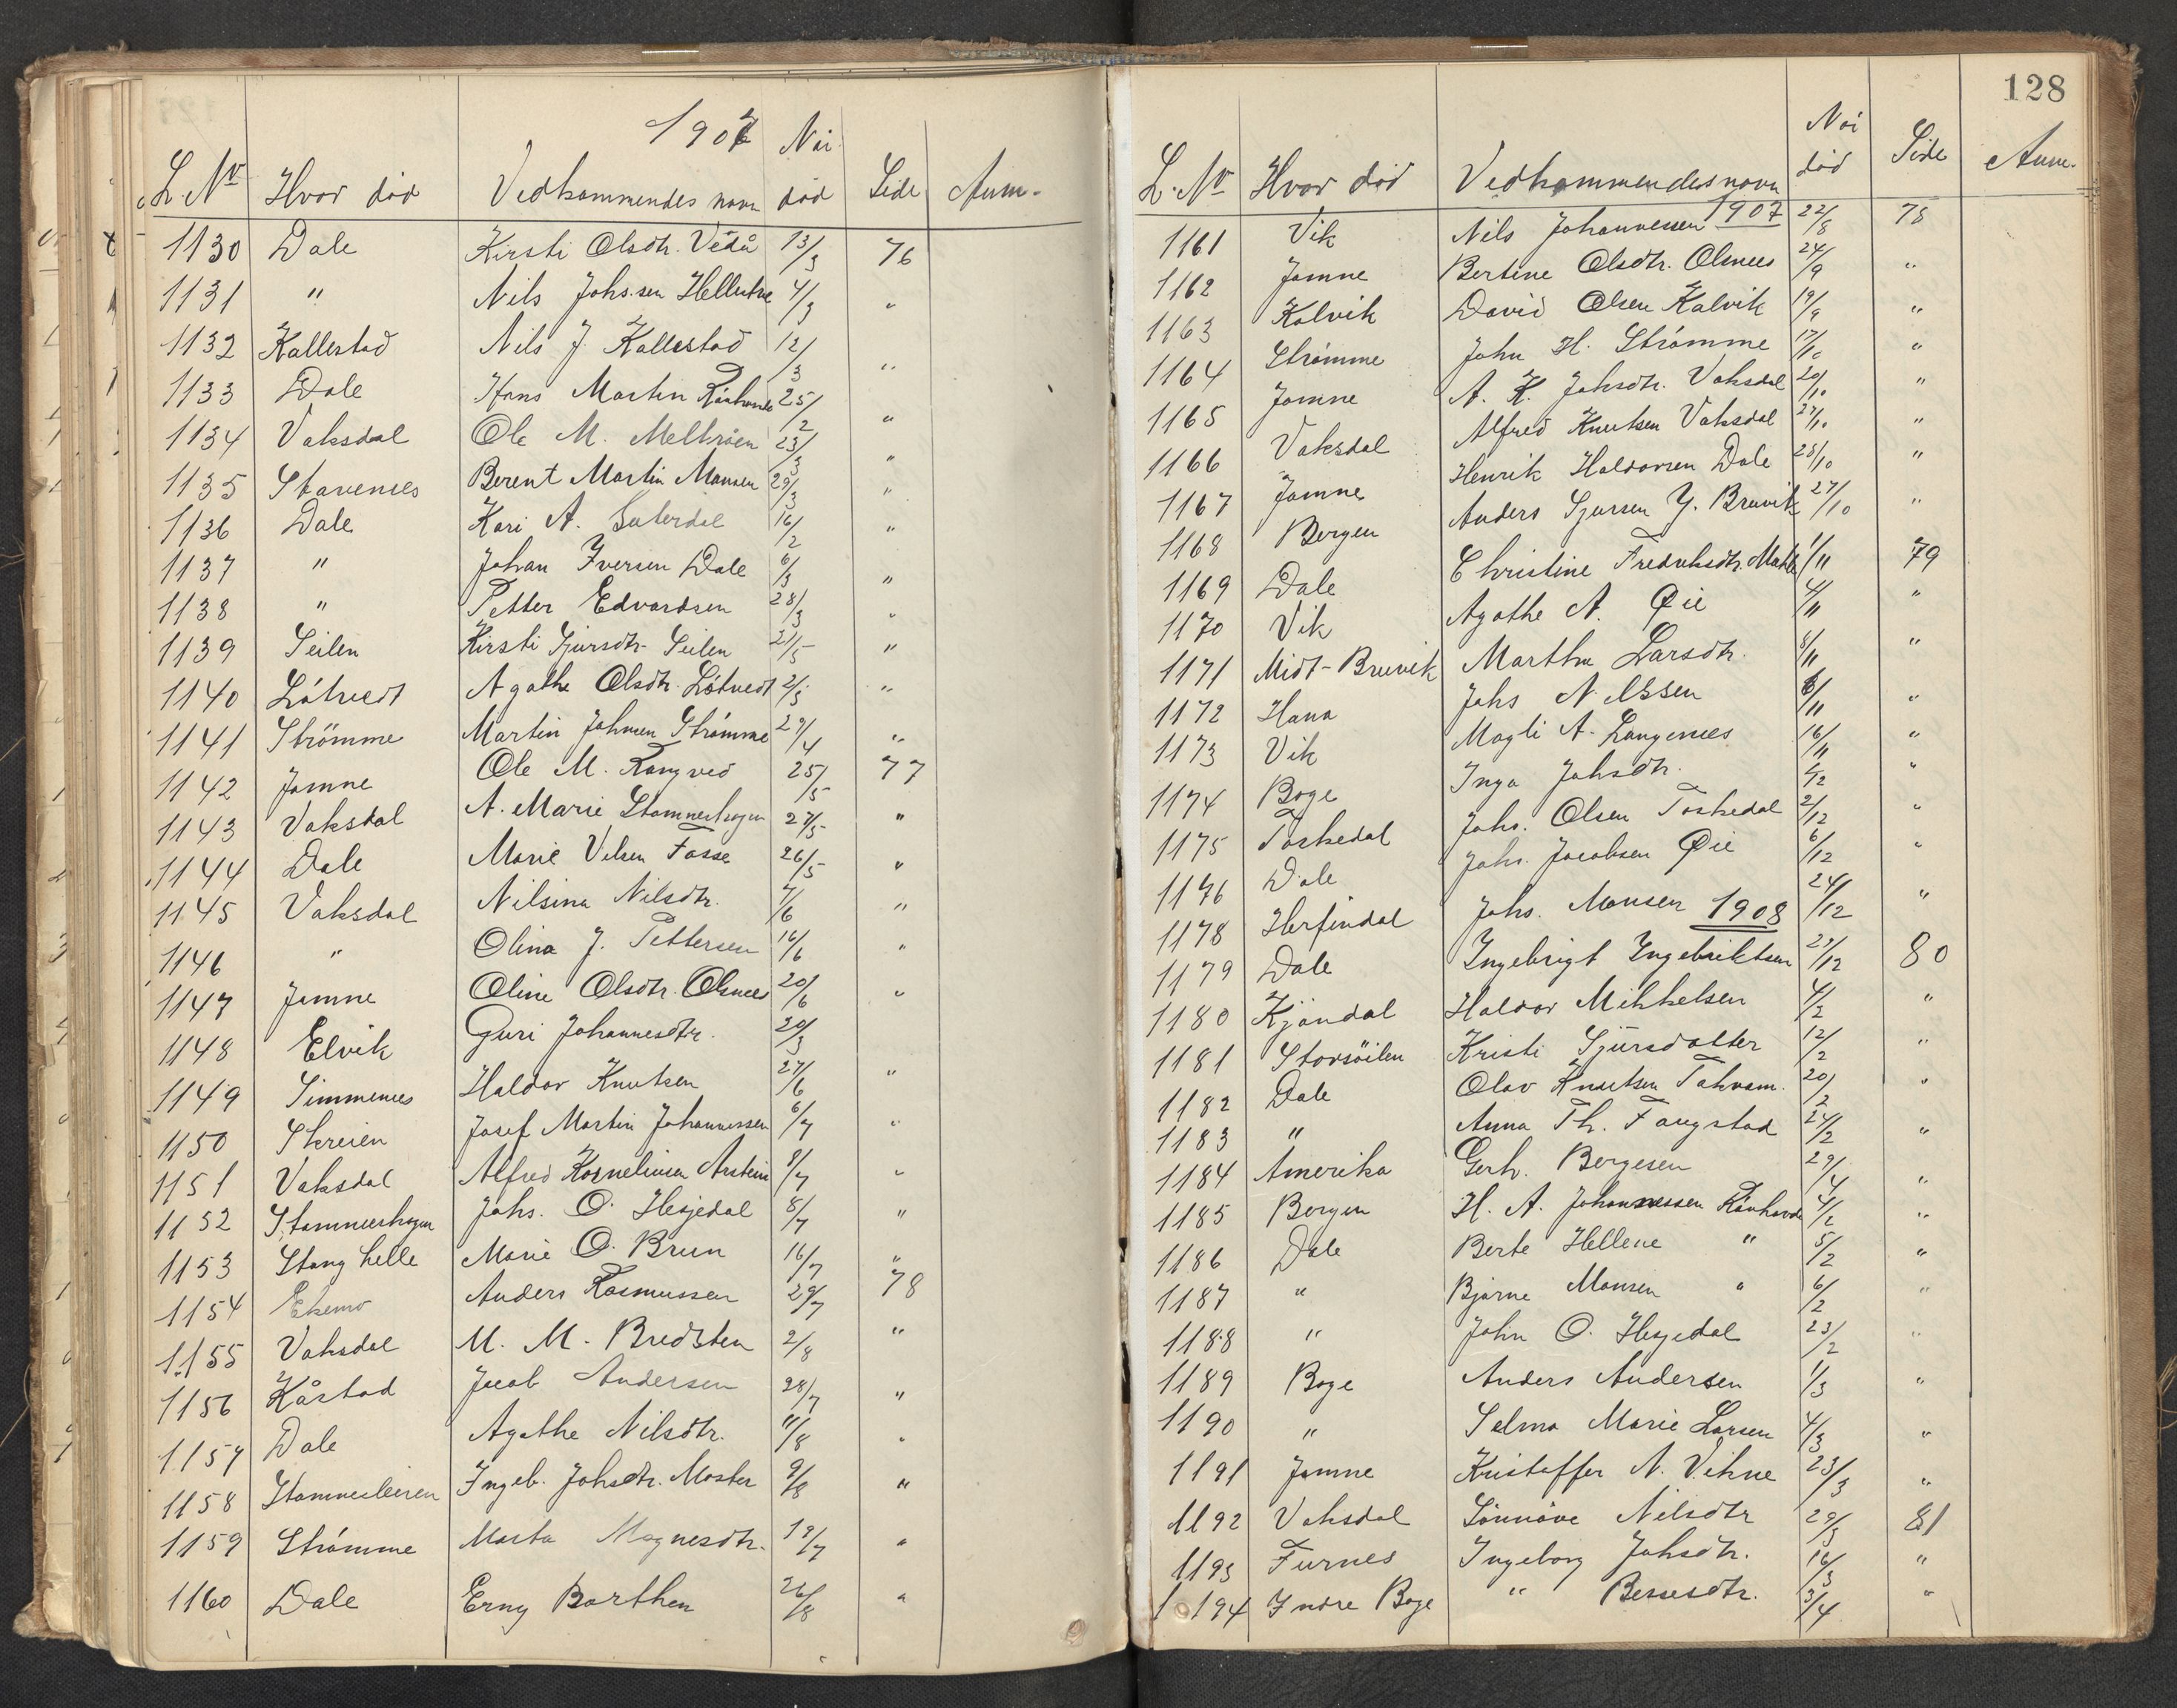 1907
L. Nr Hvor død Vedkommendes navn Nåi død Side Anm.
1130 Dale Kirsti Olsdtr. Vedå 13/3 76
1131 " Nils Johs.sen 4/3 "
1132 Kallestad Nils J. Kallestad 12/3 "
1133 Dale Hans Martin 25/2 "
1134 Vaksdal Ole M. Melkråen 23/3 "
1135 Stavenes Berent Martin Monsen 29/3 "
1136 Dale Kari A. 16/2 "
1137 " Johan Iversen Dale 6/3 "
1138 " Petter Edvardsen 28/3 "
1139 Seilen Kirsti Sjursdtr. Seilen 21/5 "
1140 Låtvedt Agathe Olsdtr. Låtvedt 2/5 "
1141 Strömme Martin Johnsen Strømme 29/4 "
1142 Jamne Ole M. Rongved 25/5 77
1143 Vaksdal A. Marie Stamneshagen 27/5 "
1144 Dale Marie Velsen Fosse 26/5 "
1145 Vaksdal Nilsina Nilsdtr. 7/6 "
1146 " Olina J. Pettersen 16/6 "
1147 Jamne Oline Olsdtr. Olsnes 20/6 "
1148 Elvik Guri Johannesdtr. 20/3
1149 Simmenes Haldor Knutsen 27/6 "
1150 Skreien Josef Martin Johannessen 6/7 "
1151 Vaksdal Alfred Kornelius 9/7 "
1152 Stamneshagen Johs. O. Hesjedal 8/7 "
1153 Stanghelle Marie O. Brun 16/7 "
1154 Ekemo Anders Rasmussen 29/7 78
1155 Vaksdal M. M. Bredsten 2/8 "
1156 Kårstad Jacob Andersen 28/7 "
1157 Dale Agathe Nilsdtr. 11/8 "
1158 Stamnesleiren Ingeb. Johsdtr. Moster 9/8 "
1159 Strømme Marta Magnesdtr. 19/7 "
1160 Dale Erny Barthen 26/8 "
128
L. Nr Hvor død Vedkommendes navn Nåi død Side Anm.
1907
1161 Vik Nils Johannessen 22/8 78
1162 Jamne Bertine Olsdtr. Olsnes 24/9 "
1163 Kalvik David Olsen Kalvik 19/9 "
1164 Strømme John H. Strømme 17/10 "
1165 Jamne A. K. Johsdtr. Vaksdal 20/10 "
1166 Vaksdal Alfred Knutsen Vaksdal 27/10 "
1167 Jamne Henrik Haldorsen Dale 28/10 "
1168 Bergen Anders Sjursen Y. Bruvik 27/10 "
1169 Dale Christine Fredriksdtr. 1/11 79
1170 Vik Agathe A. Øie 4/11 "
1171 Midt-Bruvik Martha Larsdtr. 8/11 "
1172 Hana Johs Nilssen 6/11 "
1173 Vik Magli A. Langenes 16/11 "
1174 Boge Inga Johsdtr. "
1175 Toskedal Johs. Olsen Toskedal 2/12 "
1176 Dale Johs. Jacobsen Øie 6/12 "
1178 Herfindal Johs. Monsen 24/12 "
1908
1179 Dale Ingebrigt Ingebriktsen 29/12 80
1180 Kjøndal Haldor Mikkelsen 4/2 "
1181 Storsöilen Kristi Sjursdatter 12/2 "
1182 Dale Olav Knutsen Takvam. 20/2 "
1183 " Anna Th. Fangstad 24/2 "
1184 Amerika Gerh. Bergesen 29/4 "
1185 Bergen H. A. Johannessen Råvhovde 4/2 "
1186 Dale Berte Hellene " 5/2 "
1187 " Bjarne Monsen " 6/2 "
1188 " John O. Hesjedal 23/2 "
1189 Boge Anders Andersen 1/3 "
1190 " Selma Marie Larsen 4/3 "
1191 Jamne Kristoffer N. Vikne 23/3 "
1192 Vaksdal Sönnöve Nilsdtr 29/3 81
1193 Furnes Ingeborg Johsdtr. 16/3 "
1194 Indre Boge " Bessesdtr. 3/4 "